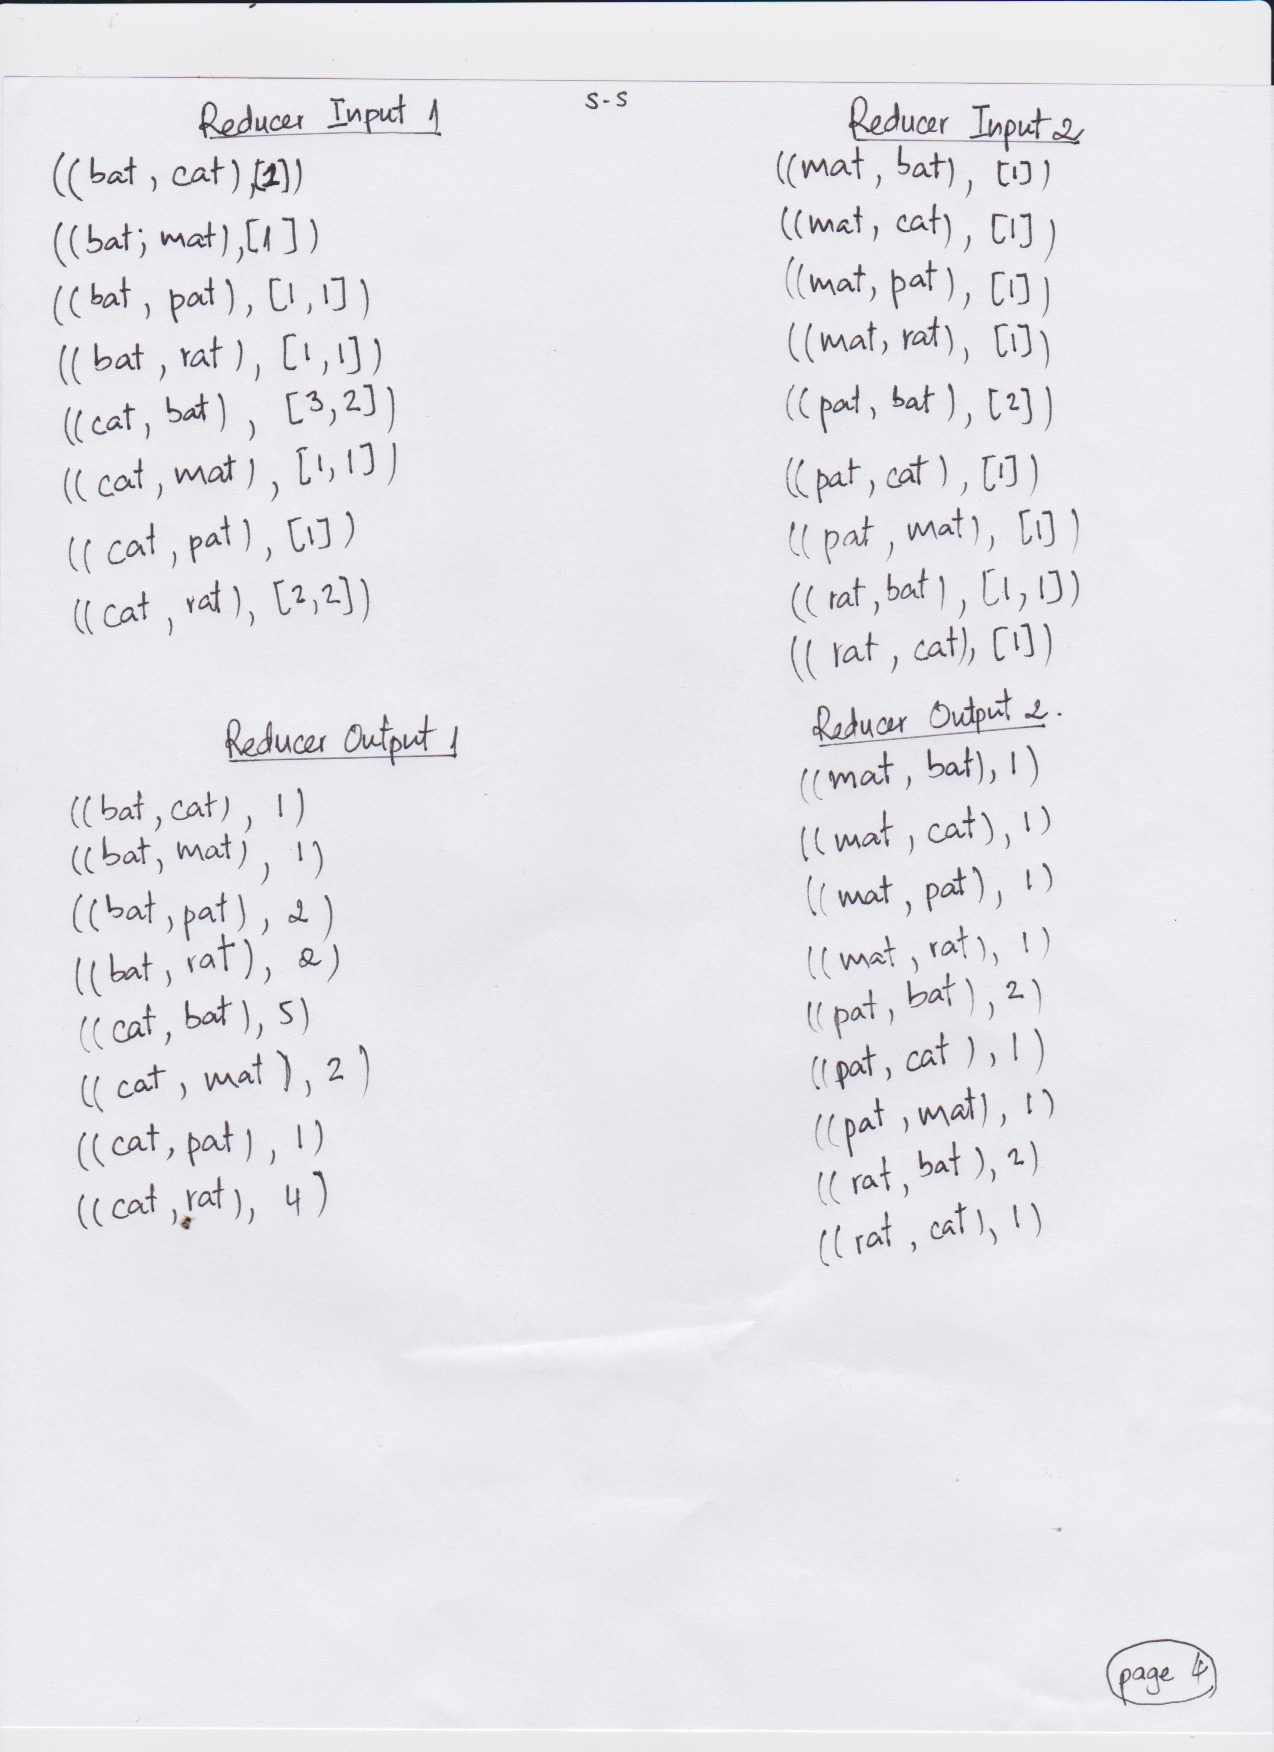 S-S
Reducer Input 1
((bat, cat),[1])
((bat; mat),[1])
((bat, pat), [1,1])
((bat, rat), [1,1])
((cat, bat), [3,2])
((cat, mat), [1,1])
((cat, pat), [1])
((cat, rat), [2,2])
Reducer Output 1
((bat, cat), 1)
((bat, mat), 1)
((bat, pat), 2)
((bat, rat), 2)
((cat, bat), 5)
((cat, mat), 2)
((cat, pat), 1)
((cat, rat), 4)
Reducer Input 2
((mat, bat), [1])
((mat, cat), [1])
((mat, pat), [1])
((mat, rat), [1])
((pat, bat), [2])
((pat, cat), [1])
((pat, mat), [1])
((rat, bat), [1,1])
((rat, cat), [1])
Reducer Output 2.
((mat, bat), 1)
((mat, cat), 1)
((mat, pat), 1)
((mat, rat), 1)
((pat, bat), 2)
((pat, cat), 1)
((pat, mat), 1)
((rat, bat), 2)
((rat, cat), 1)
page 4